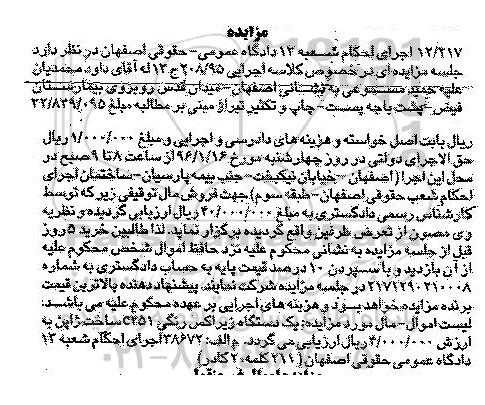 مزایده
۱۲/۲۱۷ اجرای احکام شعبه ۱۳ دادگاه عمومی- حقوقی اصفهان در نظر دارد
جلسه مزایده ای در خصوص کلاسه اجرایی ۲۰۸/۹۵ ج ۱۳ له آقای داود محمدیان
علیه حمید مستوعی به نشانی اصفهان- میدان قدس روبروی بیمارستان
فیض- پشت باجه پست- چاپ و تکثیر تیراژ مبنی بر مطالبه مبلغ ۳۲/۸۳۹/۰۹۵
ریال بابت اصل خواسته و هزینه های دادرسی و اجرایی و مبلغ ۱/۰۰۰/۰۰۰ ریال
حق الاجرای دولتی در روز چهارشنبه مورخ ۹۶/۱/۱۶ از ساعت ۸ تا ۹ صبح در
محل این اجرا (اصفهان- خیابان نیکبخت- جنب بیمه پارسیان- ساختمان اجرای
احکام شعب حقوقی اصفهان- طبقه سوم) جهت فروش مال توقیفی زیر که توسط
کارشناس رسمی دادگستری به مبلغ ۴۰/۰۰۰/۰۰۰ ریال ارزیابی گردیده و نظریه
وی مصون از تعرض طرفین واقع گردیده برگزار نماید. لذا طالبین خرید ۵ روز
قبل از جلسه مزایده به نشانی محکوم علیه نزد حافظ اموال شخص محکوم علیه
از آن بازدید و با سپردن ۱۰ درصد قیمت پایه به حساب دادگستری به شماره
۲۱۷۱۲۹۰۲۱۰۰۰۸ در جلسه مزایده شرکت نمایند. پیشنهاد دهنده بالاترین قیمت
برنده مزایده خواهد بود و هزینه های اجرایی بر عهده محکوم علیه می باشد:
لیست اموال- مال مورد مزایده: یک دستگاه زیراکس رنگی c۲۵۱ ساخت ژاپن به
ارزش ۴/۰۰۰/۰۰۰ ریال ارزیابی می گردد. م الف: ۳۸۶۷۲ اجرای احکام شعبه ۱۳
دادگاه عمومی حقوقی اصفهان (۲۱۱ کلمه- ۲ کادر)